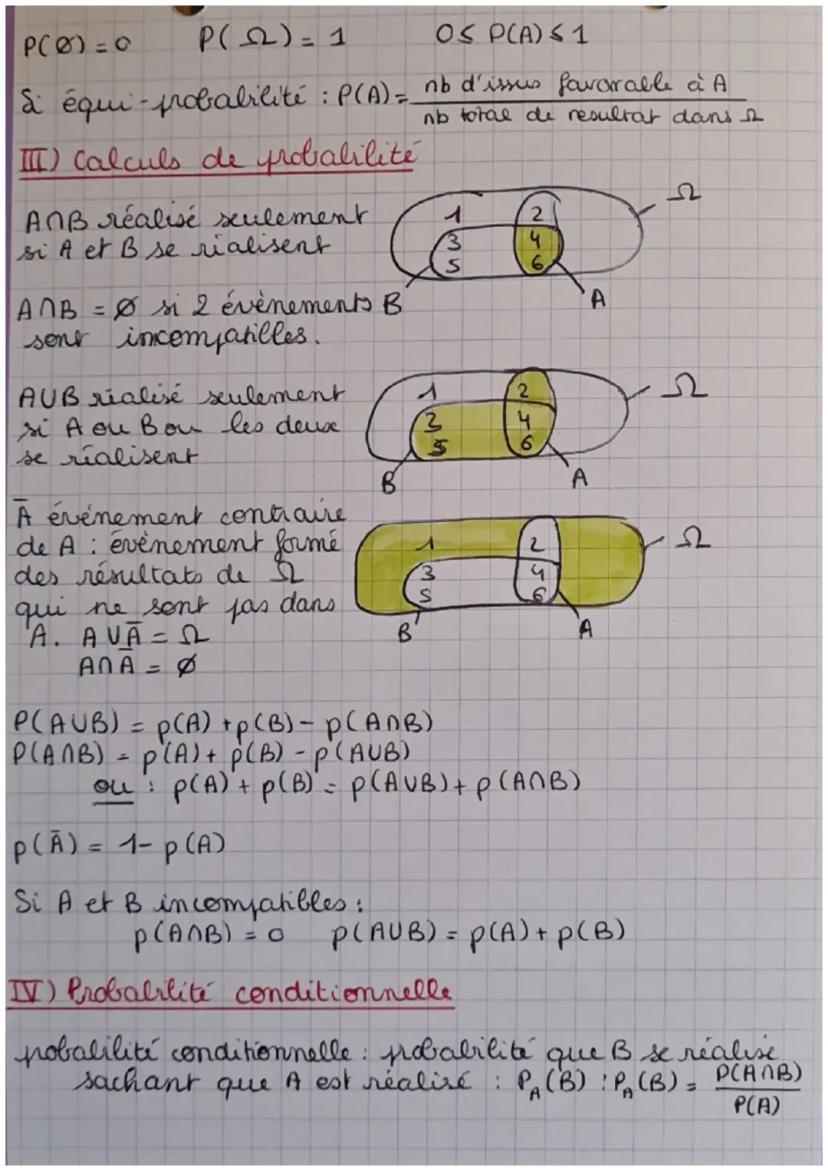 P(Ø) = 0 P(Ω) = 1 0 ≤ P(A) ≤ 1
Si équi-probabilité : P(A) = nb d'issus favorable à A / nb total de resultat dans Ω
III) Calculs de probabilité
A∩B réalisé seulement
si A et B se réalisent
1 2 3 4 5 6 Ω B A
A∩B = Ø si 2 évènements
sont incompatibles.
AUB réalisé seulement
si A ou B ou les deux
se réalisent
1 2 3 4 5 6 Ω B A
Ā événement contraire
de A : évènement formé
des résultats de Ω
qui ne sont pas dans
A. A∪Ā = Ω
A∩Ā = Ø
1 2 3 4 5 6 Ω B A
P(A∪B) = p(A) + p(B) - p(A∩B)
P(A∩B) = p(A) + p(B) - p(A∪B)
ou : p(A) + p(B) = p(A∪B) + p(A∩B)
p(Ā) = 1 - p(A)
Si A et B incompatibles :
p(A∩B) = 0 p(A∪B) = p(A) + p(B)
IV) Probabilité conditionnelle
probabilité conditionnelle : probabilité que B se réalise
sachant que A est réalisé : P_A(B) : P_A(B) = P(A∩B) / P(A)